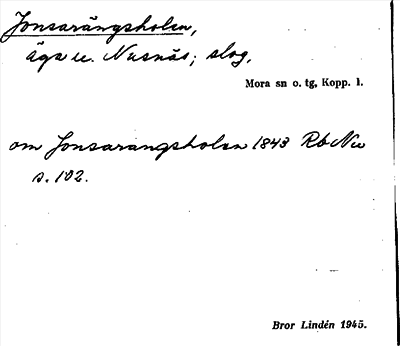 Jonsarängsholen,
ägs u. Nusnäs; slog.
Mora sn o. tg, Kopp. l.
om Jonsarangsholen 1843 Rb Nu
s. 102.
Bror Lindén 1945.